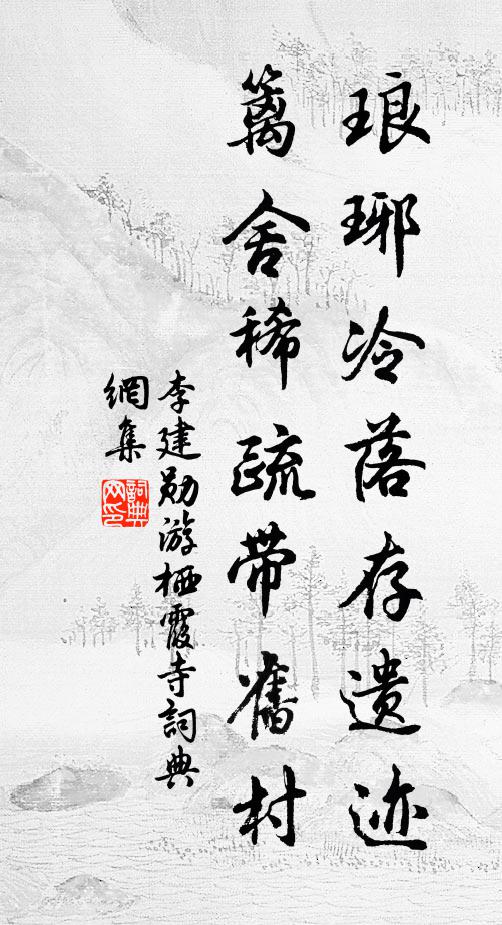 琅琊冷落存遗迹
篱舍稀疏带旧村
李建勋游栖霞寺词典
网集
词典
网印